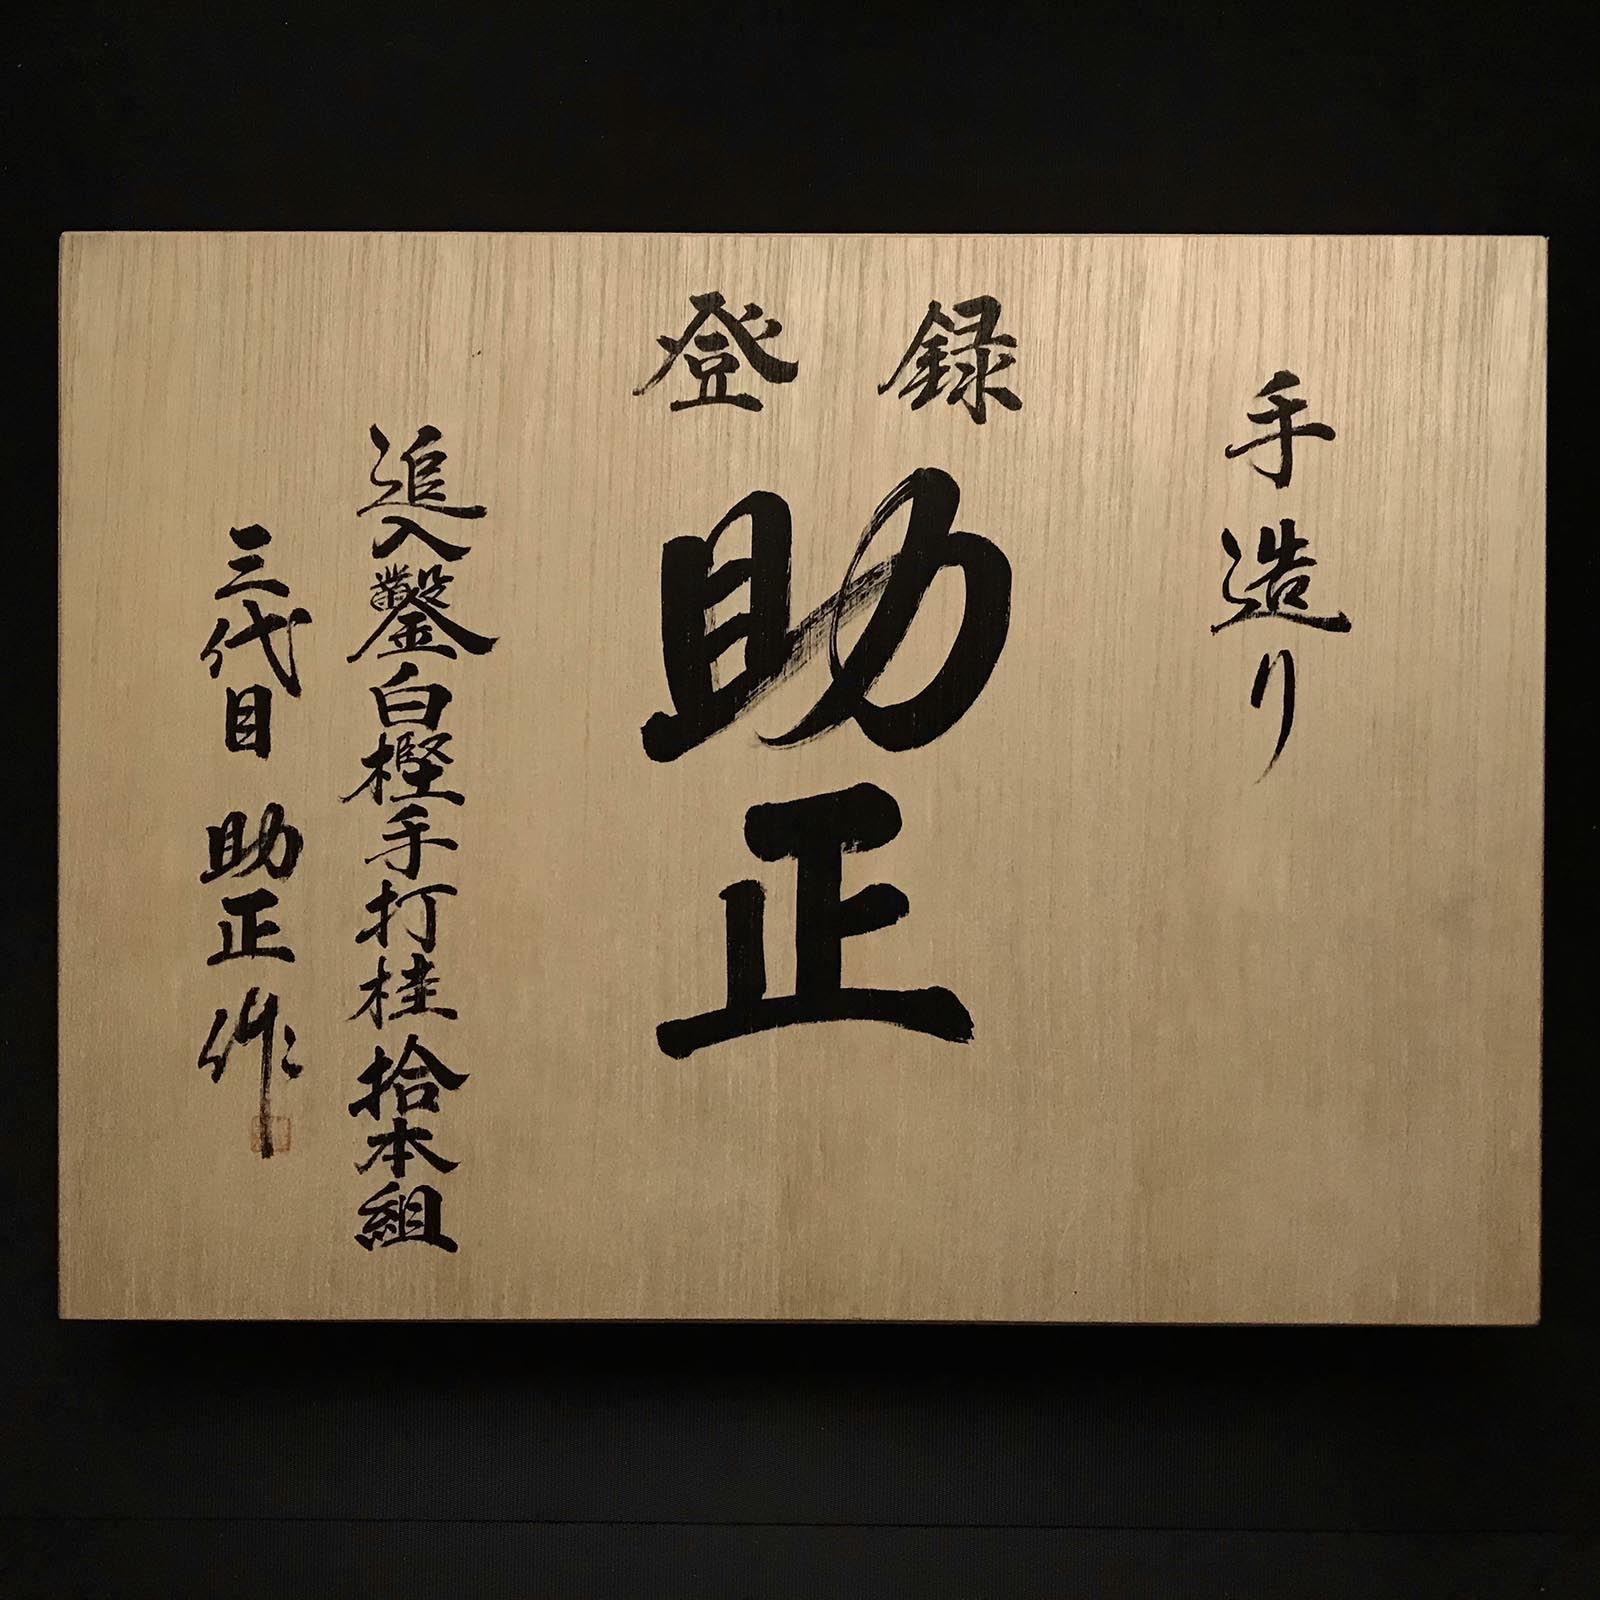 手造り
登録
助正
追入鑿白樫手打桂拾本組
三代目 助正 作